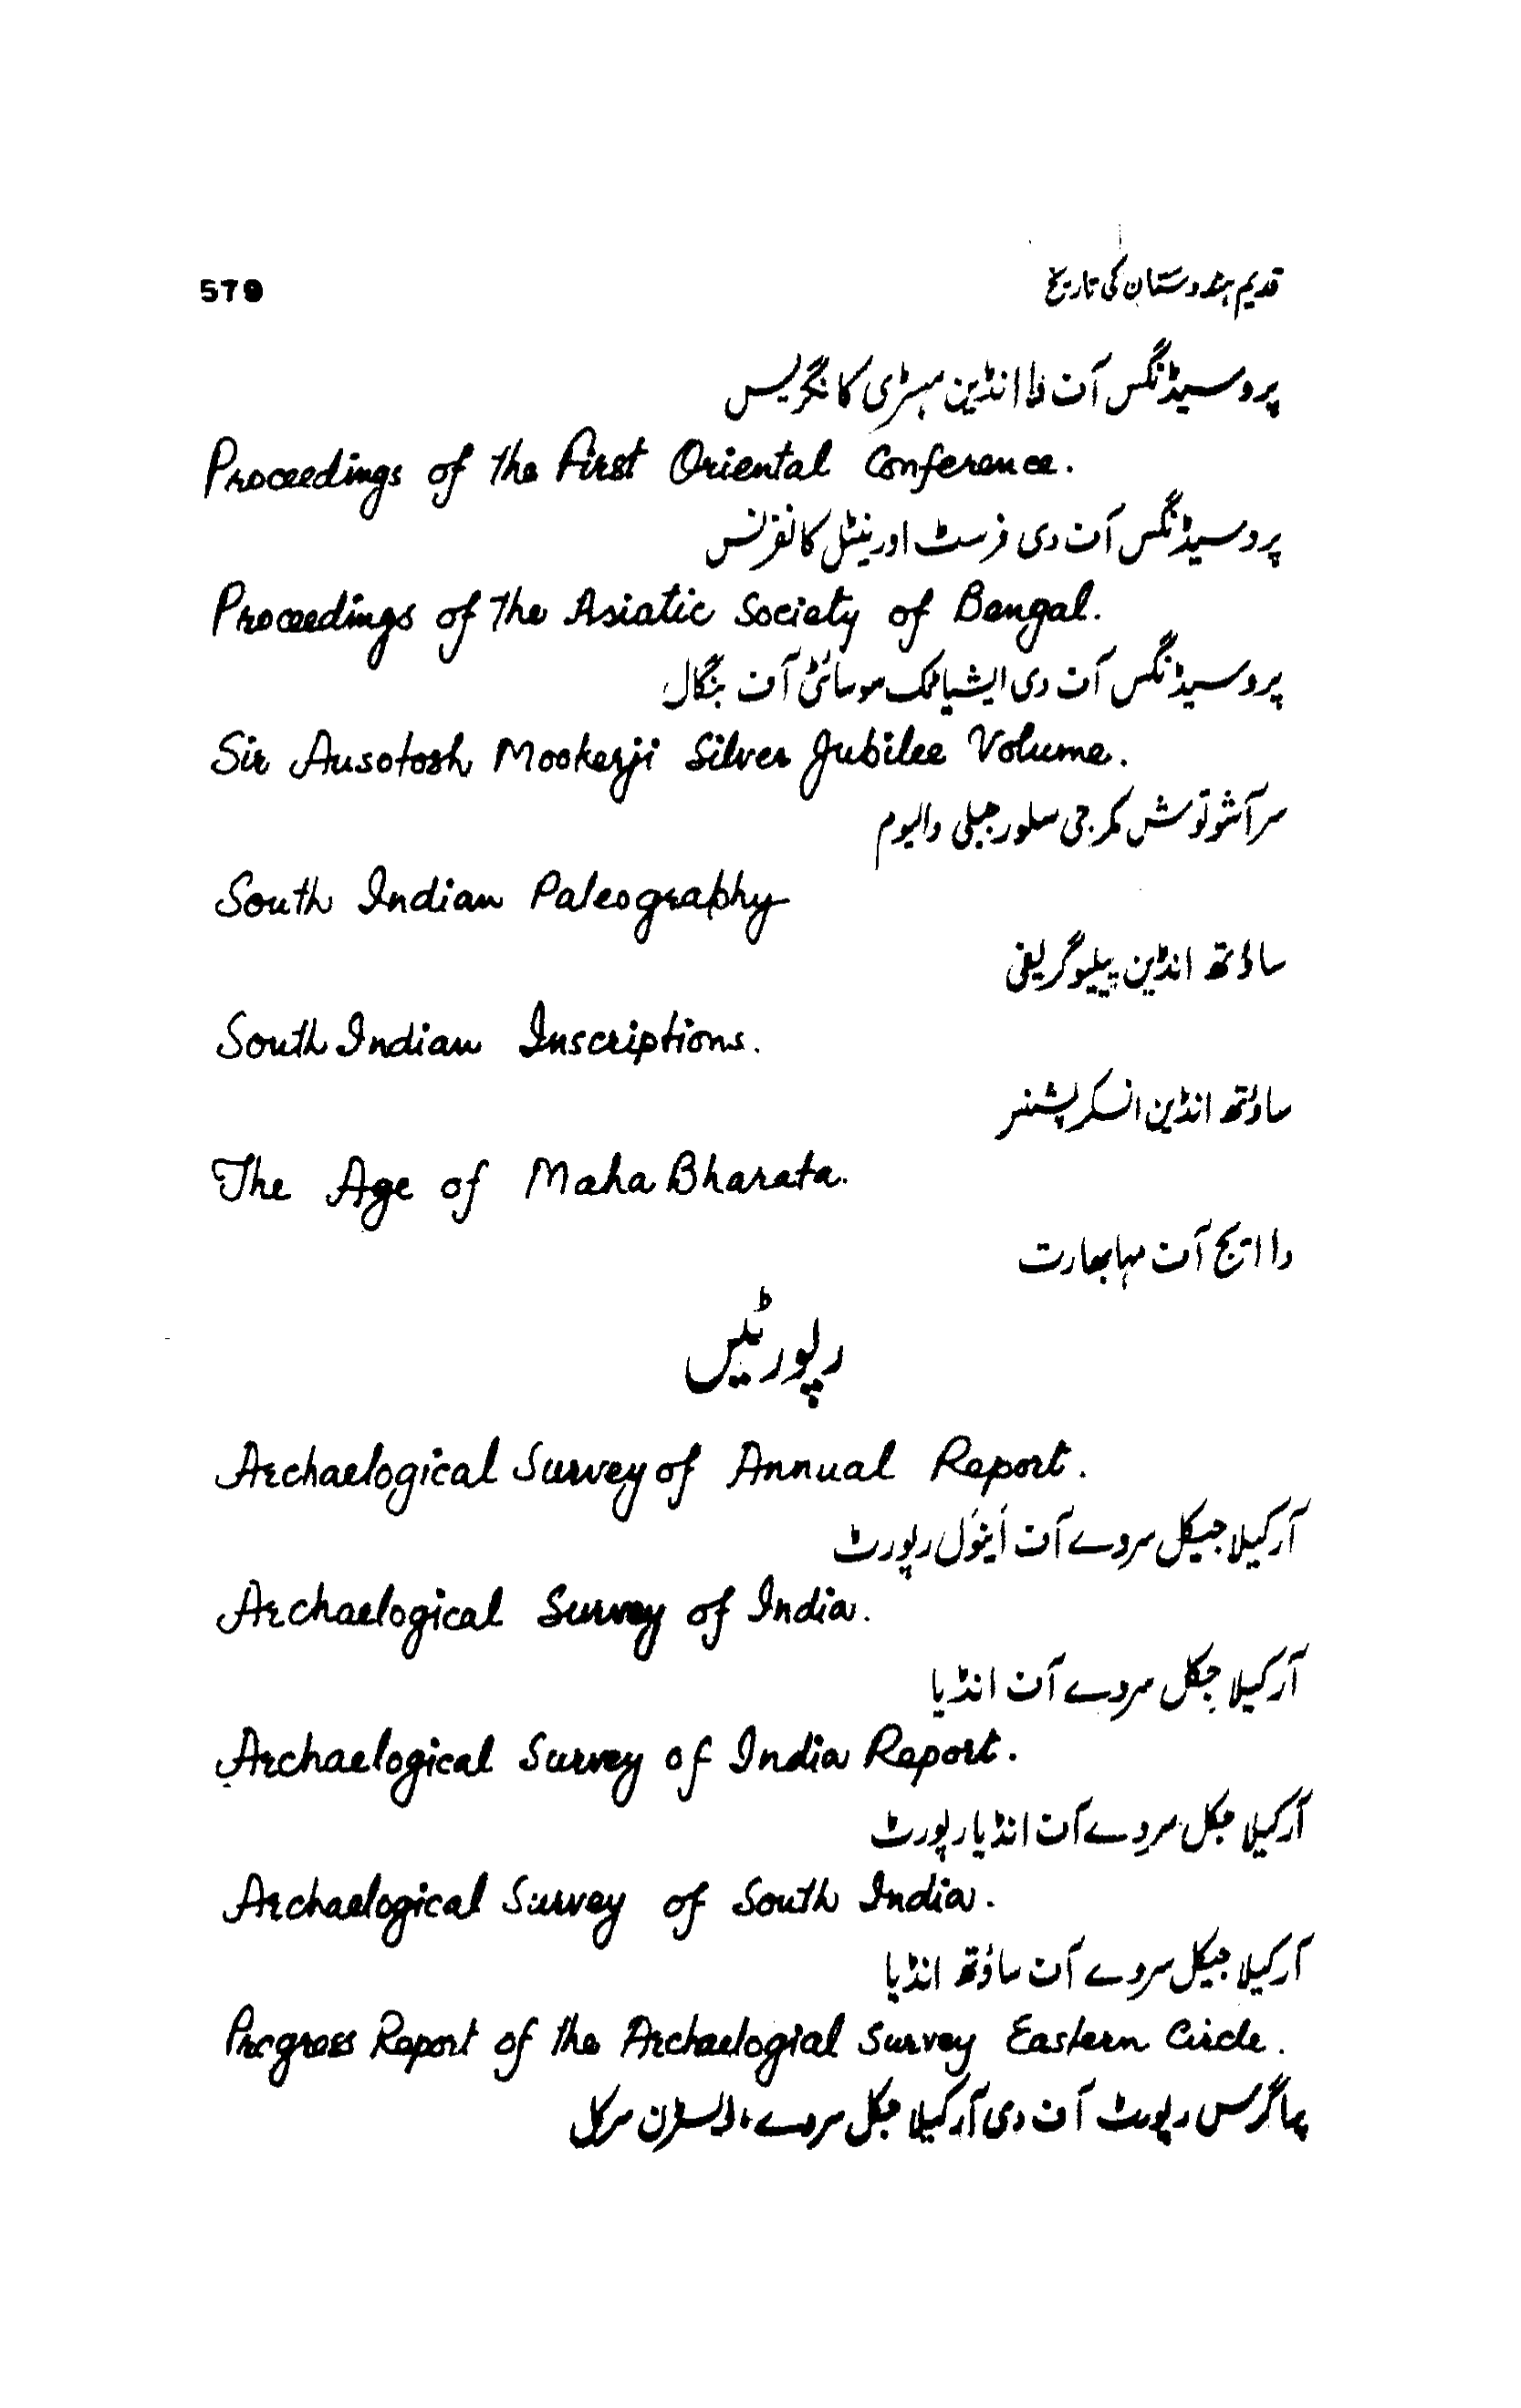 579
قدیم ہندوستان کی تاریخ
پروسیڈنگس آف دا انڈین ہسٹری کانگریس
Proceedings of the First Oriental Conference.
پروسیڈنگس آف دی فرسٹ اورینٹل کانفرنس
Proceedings of The Asiatic Society of Bengal.
پروسیڈنگس آف دی ایشیاٹک سوسائٹی آف بنگال
Sir Ausotosh Mookerji Silver Jubilee Volume.
سر آشوتوش مکرجی سلور جبلی والیوم
South Indian Paleography
ساؤتھ انڈین پیلیوگریفی
South Indian Inscriptions.
ساؤتھ انڈین انسکرپشنز
The Age of Maha Bharata.
دا ایج آف مہابھارت
رپورٹیں
Archaelogical Survey of Annual Report.
آرکیلاجیکل سروے آف اَینُوَل رپورٹ
Archaelogical Survey of India.
آرکیلا جکل سروے آف انڈیا
Archaelogical Survey of India Report.
آرکیلا جکل سروے آف انڈیا رپورٹ
Archaelogical Survey of South India.
آرکیلا جیکل سروے آف ساؤتھ انڈیا
Progress Report of the Archaelogial Survey Eastern Circle.
پراگرس رپورٹ آف دی آرکیلا جکل سروے، ایسٹرن سرکل